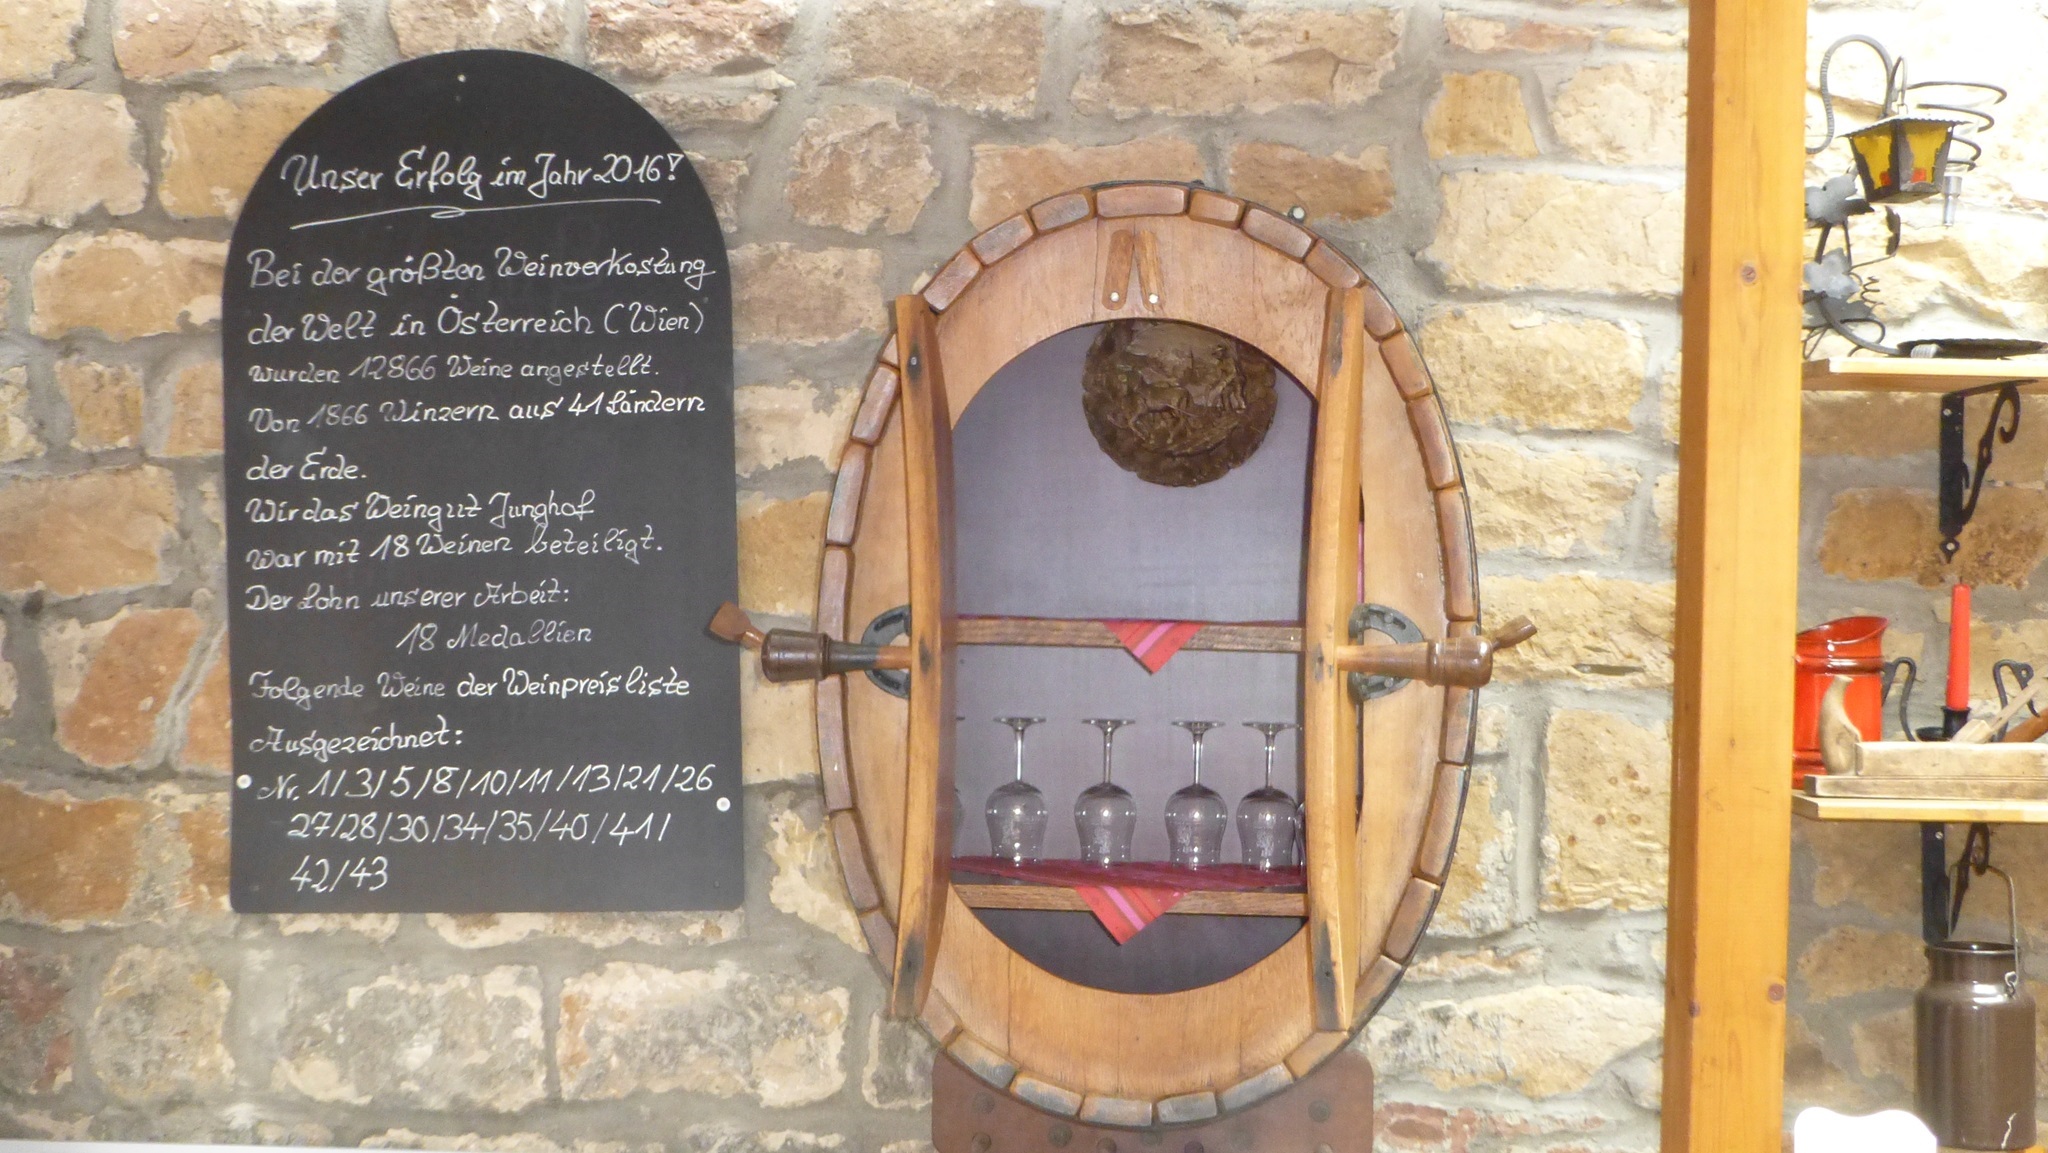 Unser Erfolg im Jahr 2016!
Bei der größten Weinverkostung
der Welt in Österreich (Wien)
wurden 12866 Weine angestellt.
Von 1866 Winzern aus 41 Ländern
der Erde.
Wir das Weingut Junghof
war mit 18 Weinen beteiligt.
Der Lohn unserer Arbeit:
18 Medallien
Folgende Weine der Weinpreisliste
Ausgezeichnet:
Nr. 1/3/5/8/10/11/13/21/26
27/28/30/34/35/40/41/
42/43